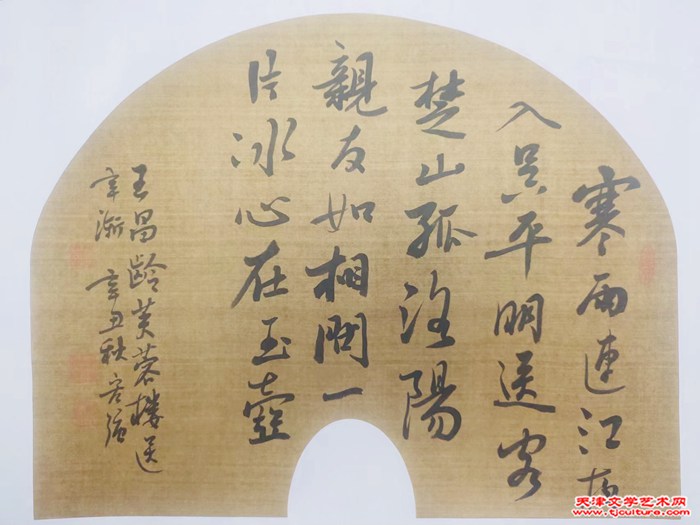 寒雨連江夜
入吴平明送客
楚山孤洛陽
親友如相問一
片冰心在玉壺
王昌齡芙蓉樓送
辛漸 辛丑秋
天津文学艺术网
www.tjculture.com